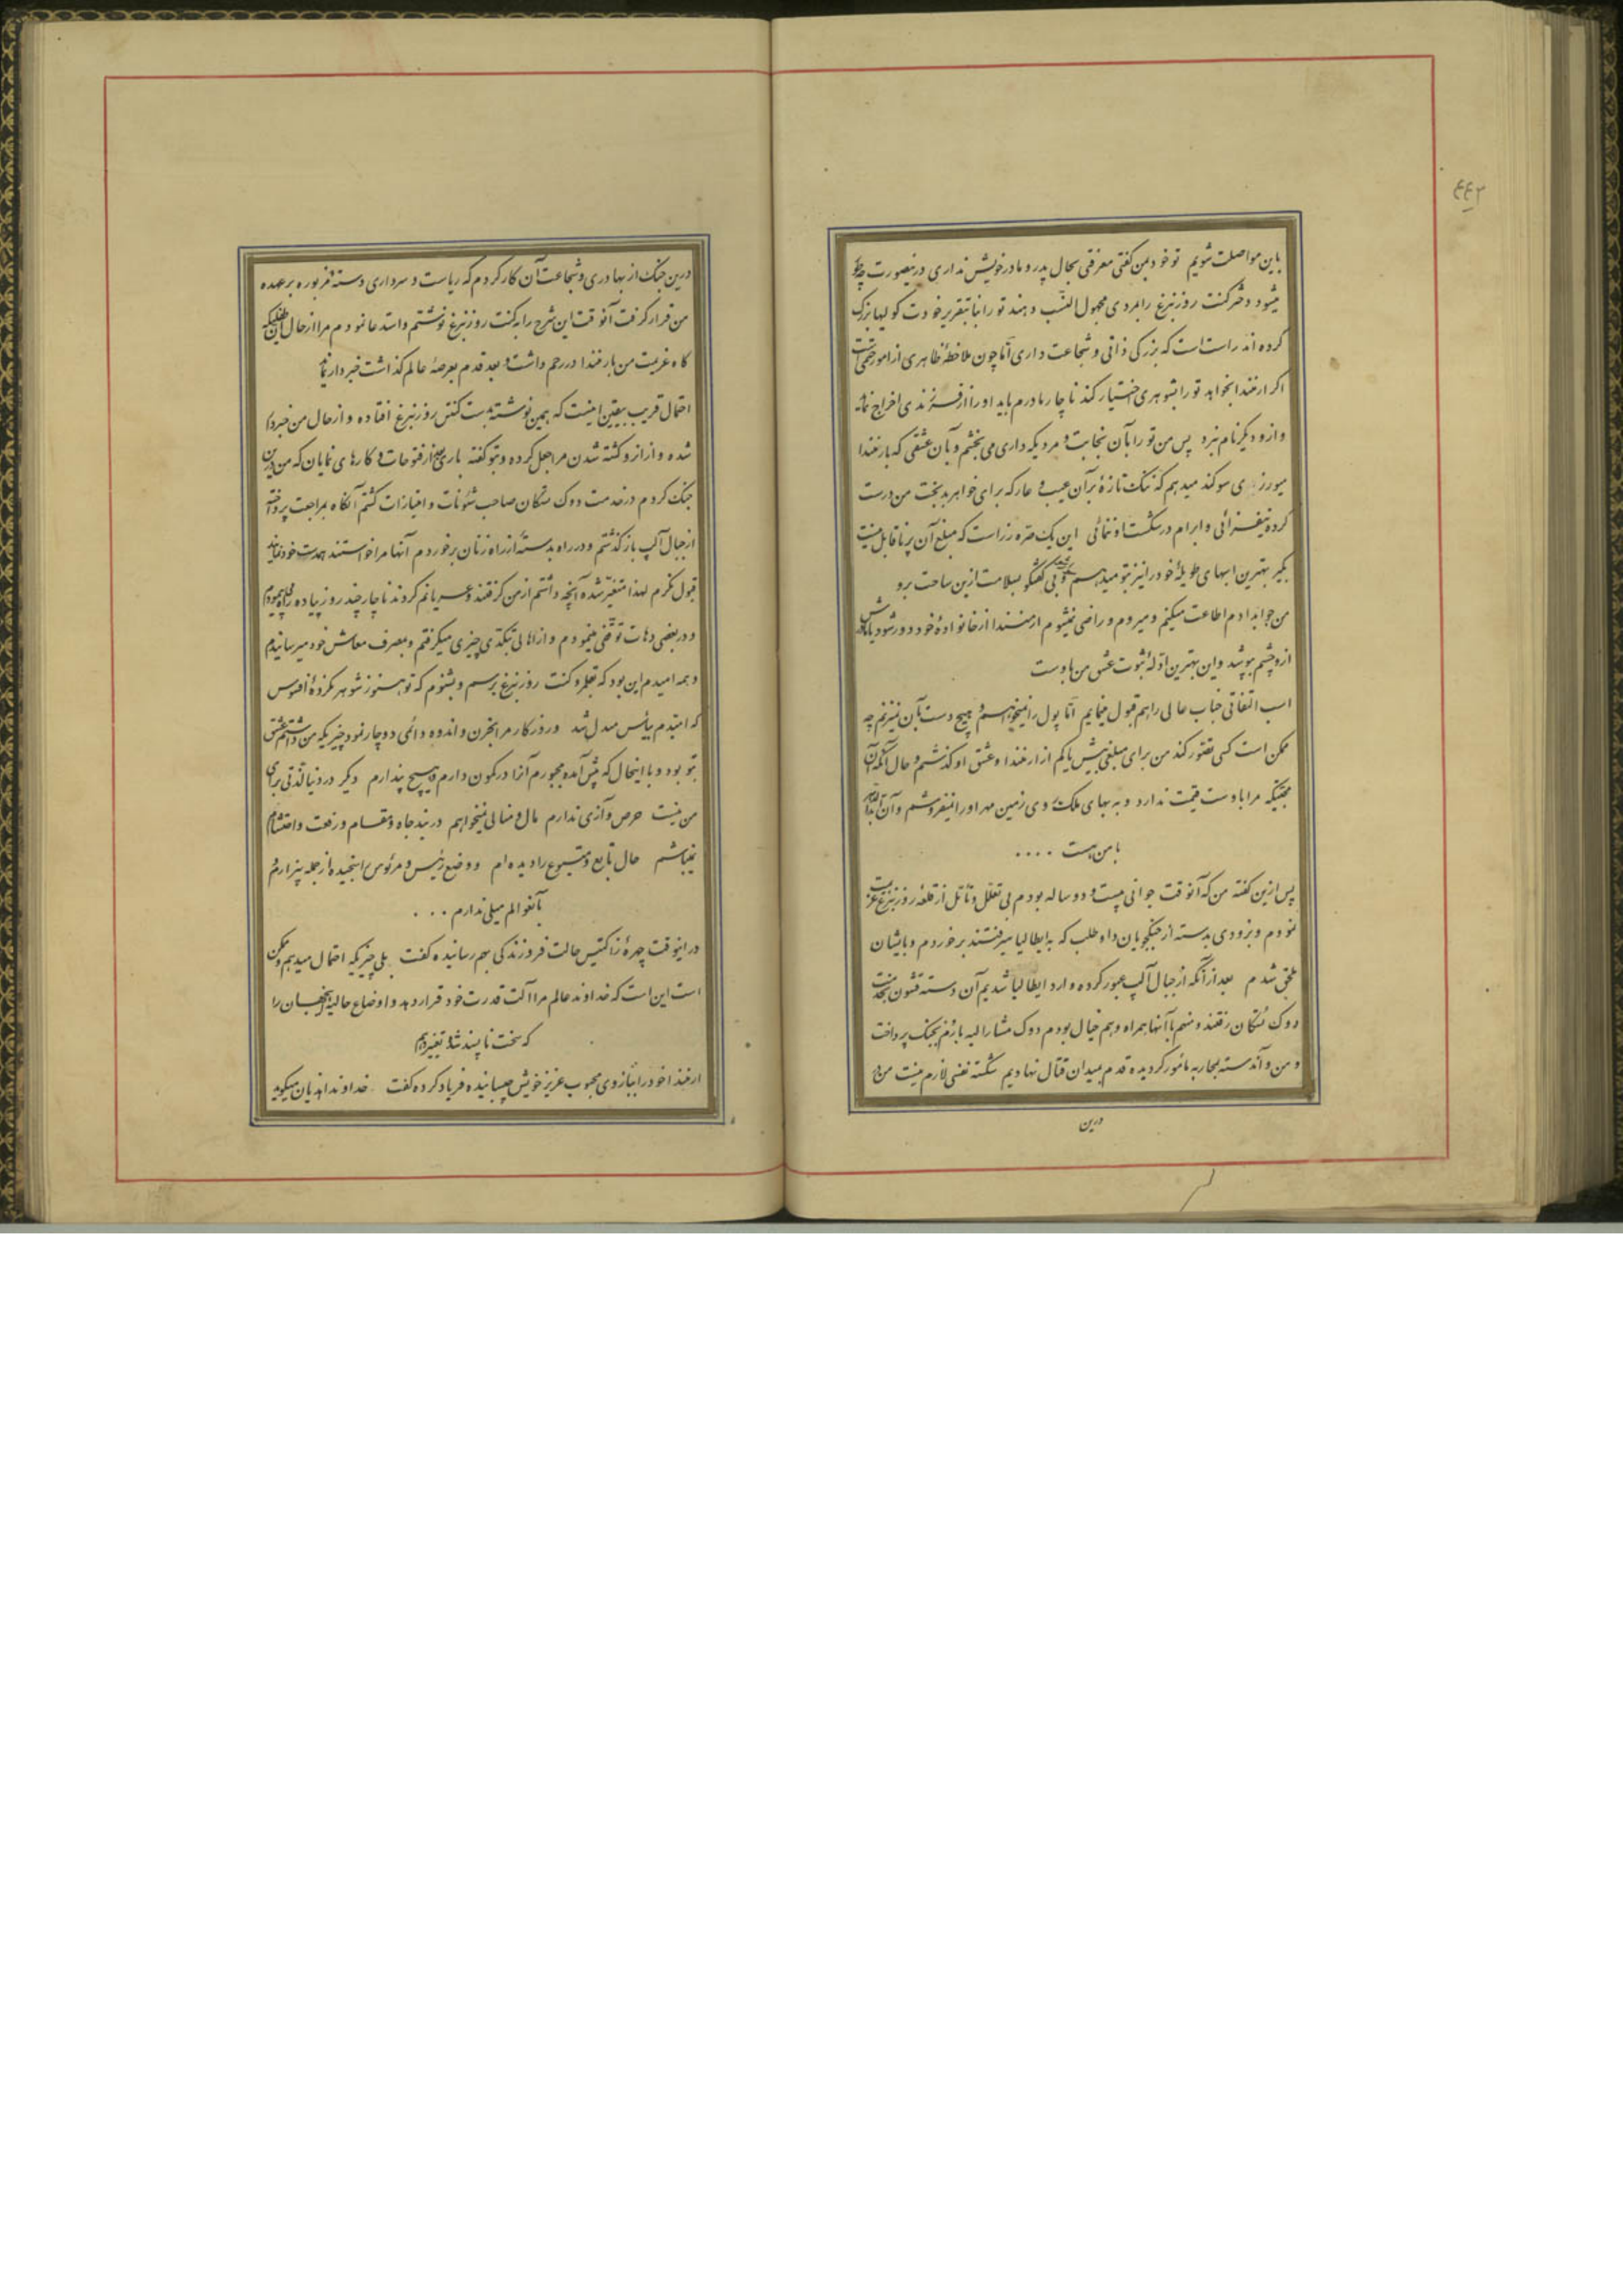 ۴۴۲
باین مواصلت شویم تو خود بمن کفتی معرفتی بحال پدر و مادر خویش نداری درینصورت چطور
میشود دختر کنت روزنبرغ را بمردی مجهول النسب دهند تو را بنا بتقریر خودت کولیها بزرک
کرده اند راست است که بزرکی ذاتی و شجاعت داری امّا چون ملاحظهٔ ظاهری از امور حتمی است
اکر ارمندا بخواهد تو را بشوهری اختیار کند ناچار مادرم باید او را از فرزندی اخراج نماید
و ازو دیکر نام نبرد پس من تو را بآن نجابت و مردیکه داری می بخشم و بآن عشقی که بارمندا
میورزی سوکند میدهم که ننک تازهٔ برآن عیب و عار که برای خواهر بدبخت من درست
کرده نیفزائی و ابرام در شکست او ننمائی این یک صره زر است که مبلغ آن پر ناقابل نیست
بکیر بهترین اسبهای طویلهٔ خود را نیز بتو میدهم و بی کفتکو بسلامت ازین ساحت برو
من جواب دادم اطاعت میکنم و میروم و راضی نمیشوم ارمندا از خانوادهٔ خود دور شود یا مادرش
ازو چشم بپوشد و این بهترین ادلّهٔ ثبوت عشق من باوست
اسب اتفاقی جناب عالی را هم قبول مینمایم امّا پول را نمیخواهم و هیچ دست بآن نمیزنم چه
ممکن است کسی تصور کند من برای مبلغی بیش یا کم از ارمندا و عشق او کذشتم و حال آنکه آن
محبتیکه مرا باوست قیمت ندارد و به بهای ملک روی زمین مهر او را نمیفروشم و آن
با من هست ....
پس ازین کفته من که آنوقت جوانی بیست و دو ساله بودم بی تعلل و تأمل از قلعه روزنبرغ عزیمت
نمودم و بزودی بدسته از جنکجویان داوطلب که بایطالیا میرفتند برخوردم و بایشان
ملحق شدم بعد از آنکه از جبال آلپ عبور کرده وارد ایطالیا شدیم آن دسته قشون بخدمت
دوک تسکان رفتند و منهم با آنها همراه و هم خیال بودم دوک مشار الیه بازُم بجنک پرداخت
و من و آندسته بمحاربه مأمور کردیده قدم بمیدان قتال نهادیم شکسته نفسی لازم نیست من
درین
درین جنک از بهادری و شجاعت آن کار کردم که ریاست و سرداری دسته مزبوره بر عهده
من قرار کرفت آنوقت این شرح را بکنت روزنبرغ نوشتم و استدعا نمودم مرا از حال آن طفلیکه
کاه عزیمت من بارمندا در رحم داشت و بعد قدم بعرصهٔ عالم کذاشت خبردار نماید
احتمال قریب بیقین اینست که همین نوشته بدست کنتس روزنبرغ افتاده و از حال من خبردار
شده و از ازو کشته شدن مرا جعل کرده و بتو کفته باری بعد از فتوحات و کارهای نمایان که من درین
جنک کردم در خدمت دوک تسکان صاحب شئونات و امتیازات کشتم آنکاه بمراجعت پرداخته
از جبال آلپ باز کذشتم و در راه بدستهٔ از راه زنان برخوردم آنها مرا خواستند همدست خود نمایند
قبول نکردم لهذا متغیر شده آنچه داشتم از من کرفتند و عریانم کردند ناچار چند روز پیاده راه پیمودم
و در بعضی دهات توقفی مینمودم و از اهالی بتکدّی چیزی میکرفتم و بمصرف معاش خود میرسانیدم
و همه امیدم این بود که بقلمرو کنت روزنبرغ برسم و بشنوم که تو هنوز شوهر نکردهٔ افسوس
که امیدم بیأس مبدل شد و روزکار مرا بحزن و اندوه دائمی دوچار نمود چیزیکه من داشتم عشق
بتو بود و با اینحال که پیش آمده مجبورم آنرا در کمون دارم و هیچ پندارم دیکر در دنیا لذّتی برای
من نیست حرص و آزی ندارم مال و منالی نمیخواهم در بند جاه و مقام و رفعت و احتشام
نمیباشم حال تابع و متبوع را دیده ام و وضع رئیس و مرئوس را سنجیده از جمله بیزارم و
بآنعوالم میلی ندارم ...
در اینوقت چهرهٔ زاکتیس حالت فروزندکی بهم رسانیده کفت بلی چیزیکه احتمال میدهم و ممکن
است این است که خداوند عالم مرا آلت قدرت خود قرار دهد و اوضاع حالیهٔ اینجهان را
که سخت ناپسند شده تغییر دهم
ارمندا خود را ببازوی محبوب عزیز خویش چسبانیده فریاد کرده کفت خداوندا هذیان میکوید